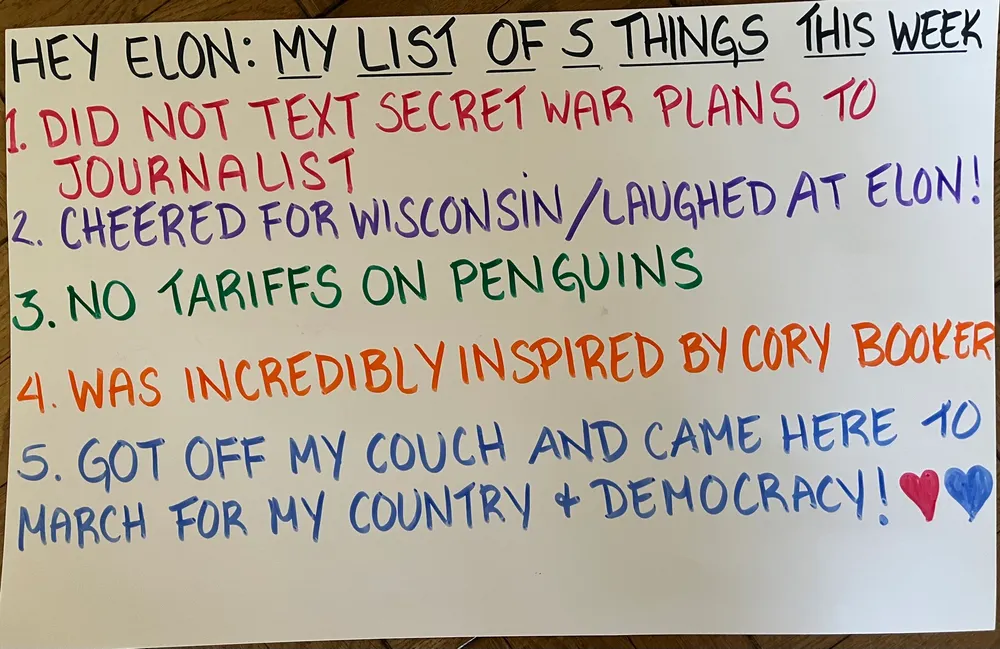 HEY ELON: MY LIST OF 5 THINGS THIS WEEK
1. DID NOT TEXT SECRET WAR PLANS TO
JOURNALIST
2. CHEERED FOR WISCONSIN/LAUGHED AT ELON!
3. NO TARIFFS ON PENGUINS
4. WAS INCREDIBLY INSPIRED BY CORY BOOKER
5. GOT OFF MY COUCH AND CAME HERE TO
MARCH FOR MY COUNTRY & DEMOCRACY!